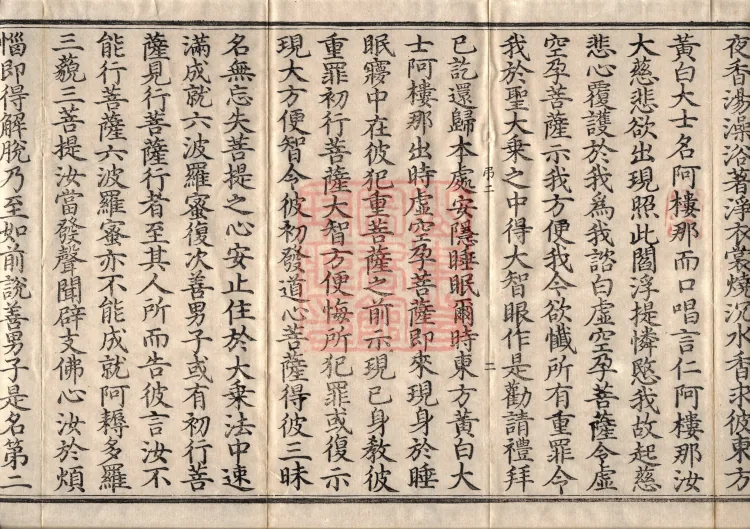 夜香湯澡浴著淨衣裳燒沈水香求彼東方
黃白大士名阿樓那而口唱言仁阿樓那汝
大慈悲欲出現照此閻浮提憐愍我故起慈
悲心覆護於我爲我諮白虛空孕菩薩令虛
空孕菩薩示我方便我今欲懺所有重罪令
我於聖大乗之中得大智眼作是勸請禮拜
弔二 二
已訖還歸本處安隱睡眠爾時東方黃白大
士阿樓那出時虛空孕菩薩即來現身於睡
眠寤中在彼犯重菩薩之前示現已身教彼
重罪初行菩薩大智方便悔所犯罪或復示
現大方便智令彼初發道心菩薩得彼三昧
名無忘失菩提之心安止住於大乗法中速
滿成就六波羅蜜復次善男子或有初行菩
薩見行菩薩行者至其人所而告彼言汝不
能行菩薩六波羅蜜亦不能成就阿耨多羅
三藐三菩提汝當發聲聞辟支佛心汝於煩
惱即得解脫乃至如前說善男子是名第二